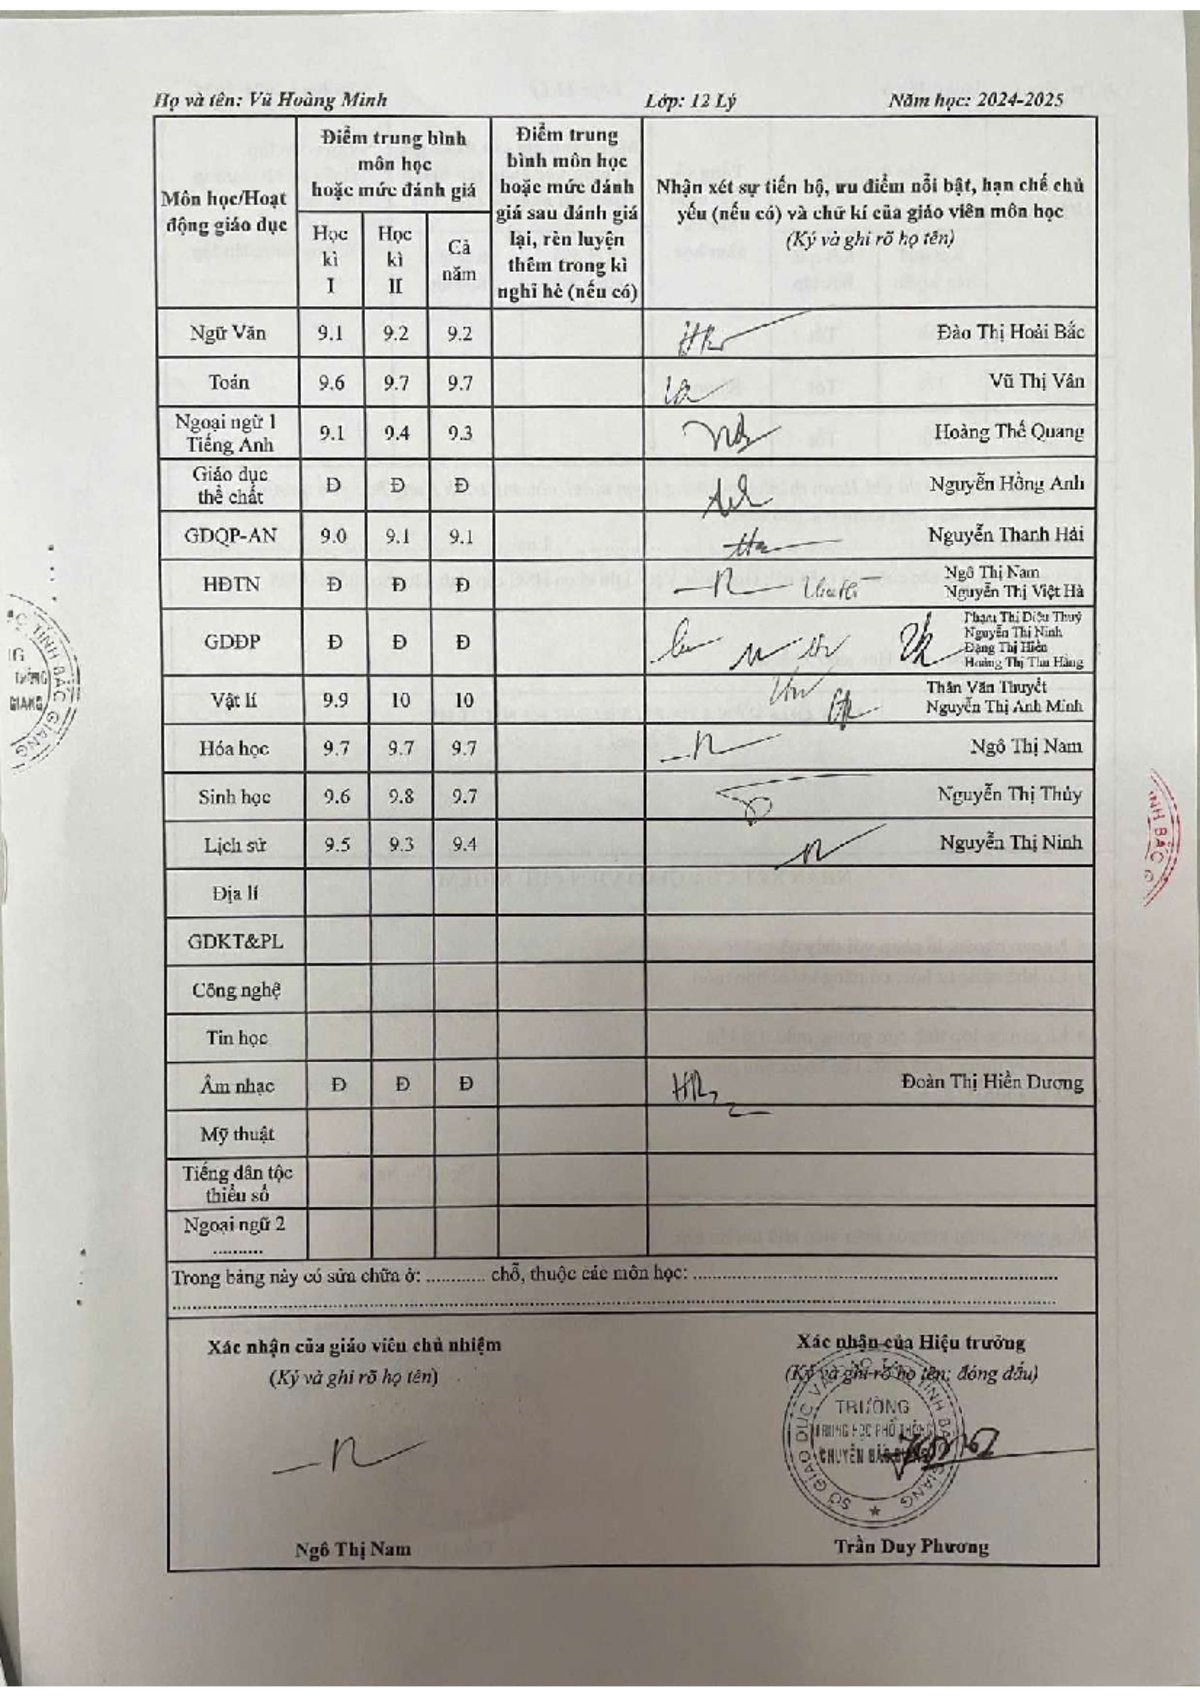 Họ và tên: Vũ Hoàng Minh Lớp: 12 Lý Năm học: 2024-2025
Môn học/Hoạt động giáo dục
Điểm trung bình môn học hoặc mức đánh giá
Học kì I
Học kì II
Cả năm
Điểm trung bình môn học hoặc mức đánh giá sau đánh giá lại, rèn luyện thêm trong kì nghỉ hè (nếu có)
Nhận xét sự tiến bộ, ưu điểm nổi bật, hạn chế chủ yếu (nếu có) và chữ kí của giáo viên môn học
(Ký và ghi rõ họ tên)
Ngữ Văn 9.1 9.2 9.2 Đào Thị Hoài Bắc
Toán 9.6 9.7 9.7 Vũ Thị Vân
Ngoại ngữ 1
Tiếng Anh 9.1 9.4 9.3 Hoàng Thế Quang
Giáo dục
thể chất Đ Đ Đ Nguyễn Hồng Anh
GDQP-AN 9.0 9.1 9.1 Nguyễn Thanh Hải
HĐTN Đ Đ Đ Ngô Thị Nam
Nguyễn Thị Việt Hà
GDĐP Đ Đ Đ Phạm Thị Diệu Thuý
Nguyễn Thị Ninh
Đặng Thị Hiền
Hoàng Thị Thu Hằng
Vật lí 9.9 10 10 Thân Văn Thuyết
Nguyễn Thị Anh Minh
Hóa học 9.7 9.7 9.7 Ngô Thị Nam
Sinh học 9.6 9.8 9.7 Nguyễn Thị Thủy
Lịch sử 9.5 9.3 9.4 Nguyễn Thị Ninh
Địa lí
GDKT&PL
Công nghệ
Tin học
Âm nhạc Đ Đ Đ Đoàn Thị Hiền Dương
Mỹ thuật
Tiếng dân tộc
thiểu số
Ngoại ngữ 2
..........
Trong bảng này có sửa chữa ở: ............ chỗ, thuộc các môn học: ..........................................................................
Xác nhận của giáo viên chủ nhiệm
(Ký và ghi rõ họ tên)
Ngô Thị Nam
Xác nhận của Hiệu trưởng
(Ký và ghi rõ họ tên; đóng dấu)
SỞ GIÁO DỤC VÀ ĐÀO TẠO TỈNH BẮC GIANG
TRƯỜNG
TRUNG HỌC PHỔ THÔNG
CHUYÊN BẮC GIANG
Trần Duy Phương